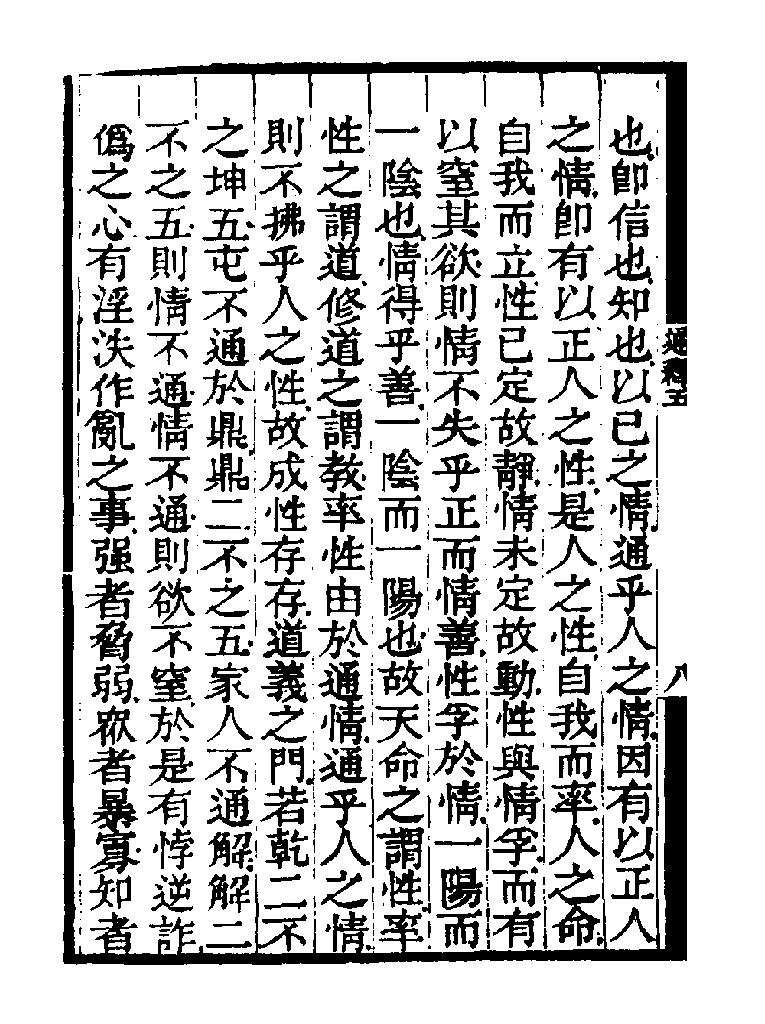 也即信也知也以已之情通乎人之情因有以正人
之情即有以正人之性是人之性自我而率人之命
自我而立性已定故靜情未定故動性與情孚而有
以窒其欲則情不失乎正而情善性孚於情一陽而
一陰也情得乎善一陰而一陽也故天命之謂性率
性之謂道修道之謂教率性由於通情通乎人之情
則不拂乎人之性故成性存存道義之門若乾二不
之坤五屯不通於鼎鼎二不之五家人不通解解二
不之五則情不通情不通則欲不窒於是有悖逆詐
僞之心有淫泆作亂之事强者脅弱衆者暴寡知者
通釋五
八